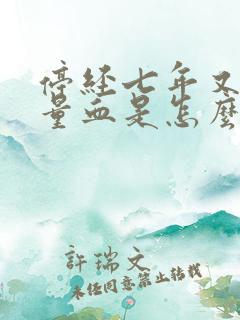 停經七年又
量血是怎麼
許瑞文
未經同意禁止轉載